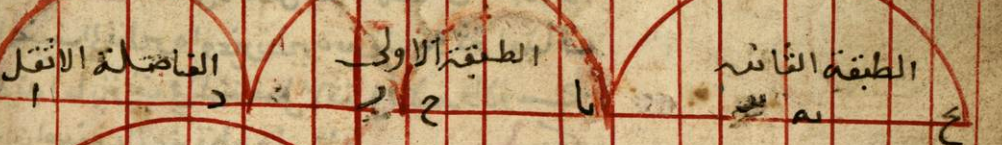 الطبقة الثانية الطبقة الاولى الفاصلة الاثقل
ع يه يا ح د ا